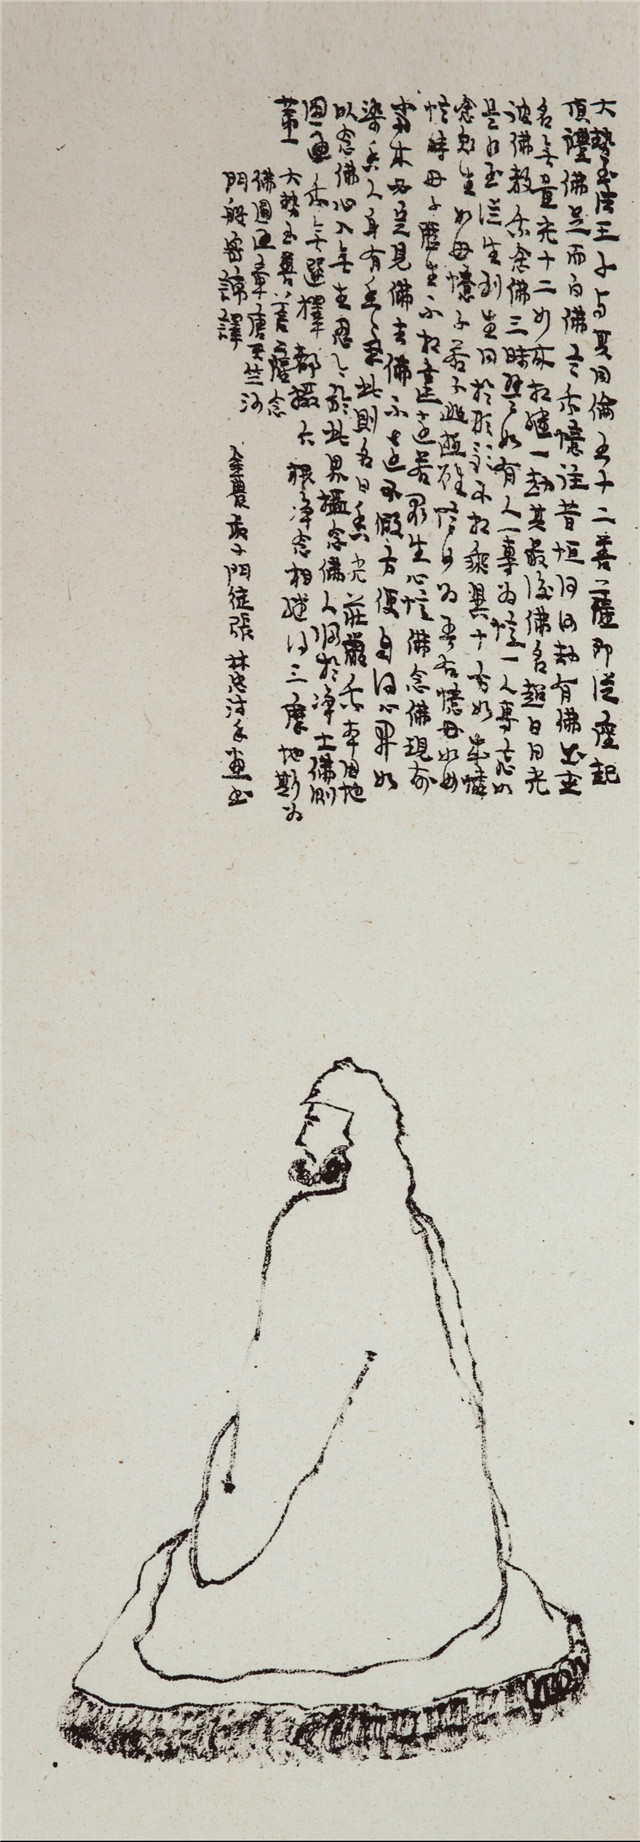 大勢至法王子与其同倫五十二菩薩即從座起
頂禮佛足而白佛言我憶往昔恒河沙劫有佛出世
名無量光十二如來相繼一劫其最後佛名超日月光
彼佛教我念佛三昧譬如有人一專為憶一人專忘如
是乃至從生至生同於形影不相乖異十方如來憐
念眾生如母憶子若子逃逝雖憶何為子若憶母如母
憶時母子歷生不相違遠若眾生心憶佛念佛現前
當來必定見佛去佛不遠不假方便自得心開如
染香人身有香氣此則名曰香光莊嚴我本因地
以念佛心入無生忍今於此界攝念佛人歸於淨土佛問
圓通我無選擇都攝六根淨念相繼得三摩地斯為
第一
大勢至菩薩念
佛圓通章唐天竺沙
門般密諦譯
金農弟子門徒張林忠沐手畫書